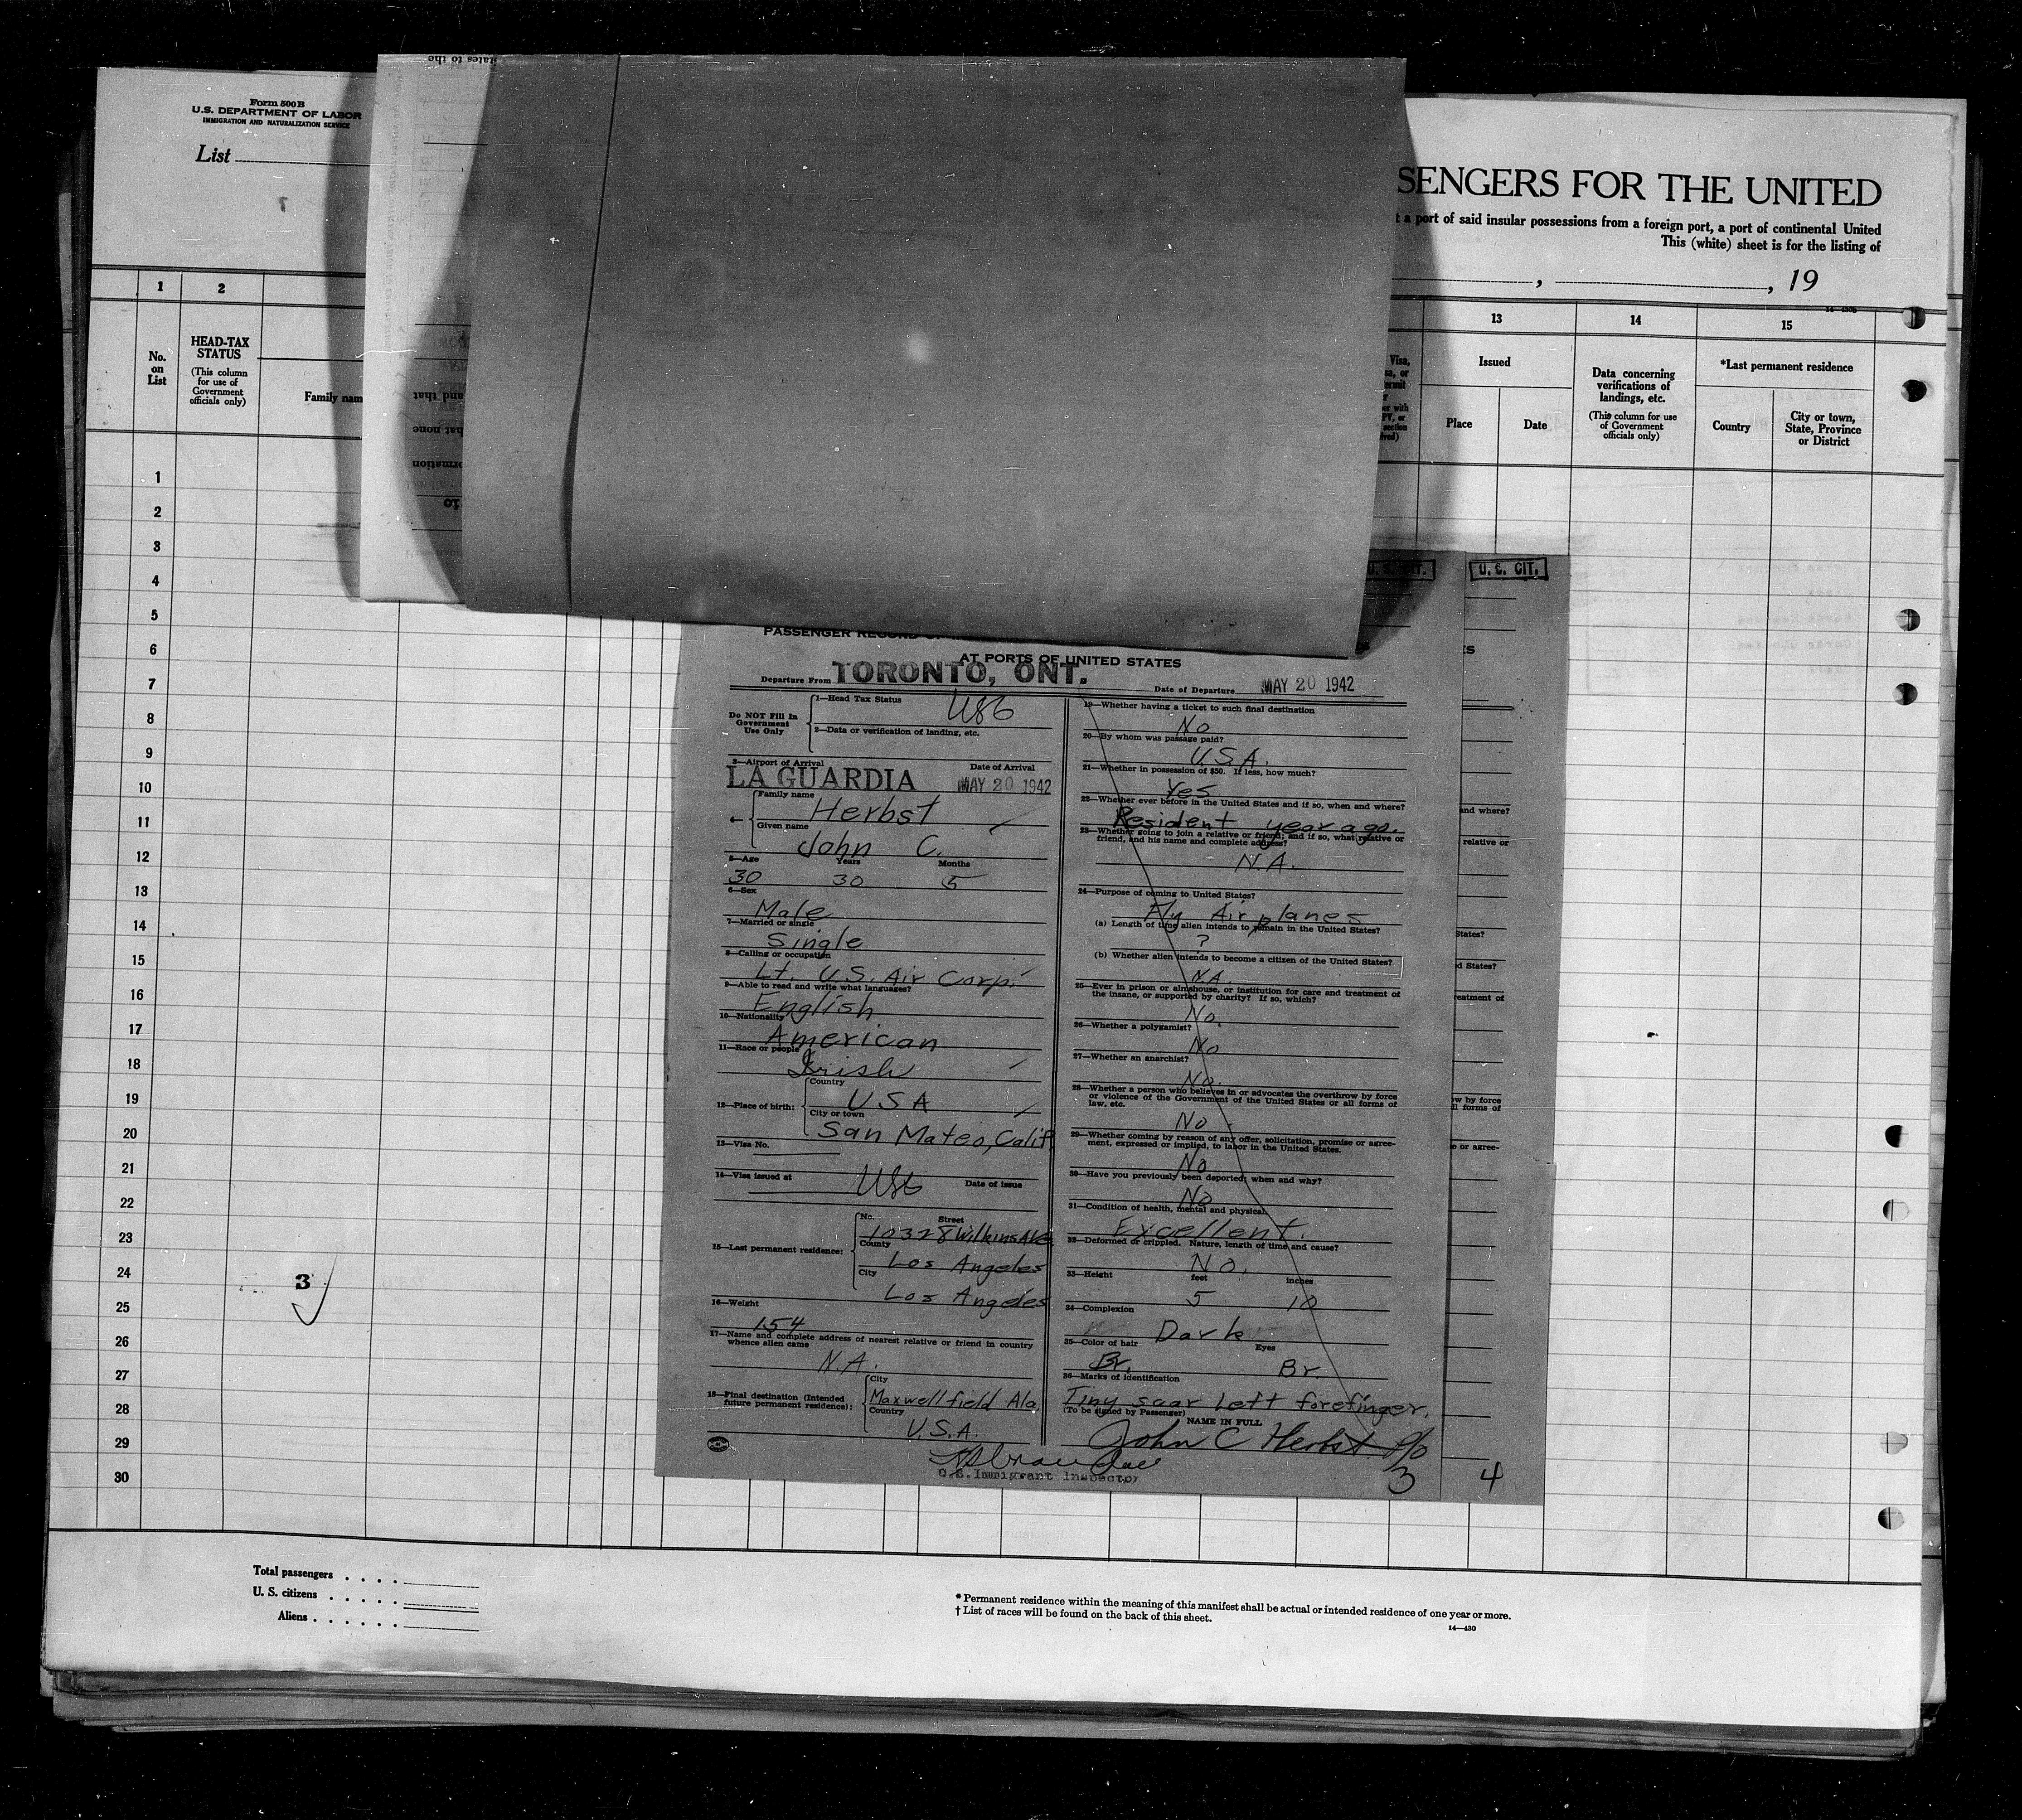 Form 500 B
U.S. DEPARTMENT OF LABOR
IMMIGRATION AND NATURALIZATION SERVICE
List
tates to the
SENGERS FOR THE UNITED
t a port of said insular possessions from a foreign port, a port of continental United
This (white) sheet is for the listing of
, , 19
1 2 13 14 15
No. on List
HEAD-TAX STATUS
(This column for use of Government officials only)
Family nam
Issued
Place Date
Data concerning verifications of landings, etc.
(This column for use of Government officials only)
*Last permanent residence
Country
City or town, State, Province or District
1
2
3
4
5
6
7
8
9
10
11
12
13
14
15
16
17
18
19
20
21
22
23
24
25
26
27
28
29
30
3
U. S. CIT.
AT PORTS OF UNITED STATES
Departure From TORONTO, ONT.
Date of Departure MAY 20 1942
Do NOT Fill In Government Use Only
1—Head Tax Status USC
2—Data or verification of landing, etc.
3—Airport of Arrival Date of Arrival
LA GUARDIA MAY 20 1942
4—
Family name Herbst
Given name John C.
5—Age Years Months
30 30 5
6—Sex
Male
7—Married or single
Single
8—Calling or occupation
Lt. U.S. Air Corp.
9—Able to read and write what languages?
English
10—Nationality
American
11—Race or people
Irish
12—Place of birth:
Country
USA
City or town
San Mateo, Calif.
13—Visa No.
14—Visa issued at USC Date of issue
15—Last permanent residence:
No. Street
10328 Wilkins Ave
County
Los Angeles
City
Los Angeles
16—Weight
154
17—Name and complete address of nearest relative or friend in country
whence alien came
N.A.
18—Final destination (Intended
future permanent residence):
City
Maxwell field Ala.
Country
U.S.A.
U.S. Immigrant Inspector
19—Whether having a ticket to such final destination
No
20—By whom was passage paid?
U.S.A.
21—Whether in possession of $50. If less, how much?
Yes
22—Whether ever before in the United States and if so, when and where?
Resident year ago.
23—Whether going to join a relative or friend; and if so, what relative or
friend, and his name and complete address?
N.A.
24—Purpose of coming to United States?
Fly Air planes
(a) Length of time alien intends to remain in the United States?
?
(b) Whether alien intends to become a citizen of the United States?
N.A
25—Ever in prison or almshouse, or institution for care and treatment of
the insane, or supported by charity? If so, which?
No.
26—Whether a polygamist?
No
27—Whether an anarchist?
No.
28—Whether a person who believes in or advocates the overthrow by force
or violence of the Government of the United States or all forms of
law, etc.
No
29—Whether coming by reason of any offer, solicitation, promise or agree-
ment, expressed or implied, to labor in the United States.
No
30—Have you previously been deported; when and why?
No
31—Condition of health, mental and physical.
Excellent.
32—Deformed or crippled. Nature, length of time and cause?
No.
33—Height feet inches
5 10
34—Complexion
Dark
35—Color of hair Eyes
Br. Br.
36—Marks of identification
Tiny scar Left forefinger.
(To be signed by Passenger) NAME IN FULL
John C Herbst
3
4
and where?
relative or
States?
d States?
eatment of
w by force
ll forms of
e or agree-
Total passengers . . . .
U. S. citizens . . . . .
Aliens . . . . . .
* Permanent residence within the meaning of this manifest shall be actual or intended residence of one year or more.
† List of races will be found on the back of this sheet.
14—430